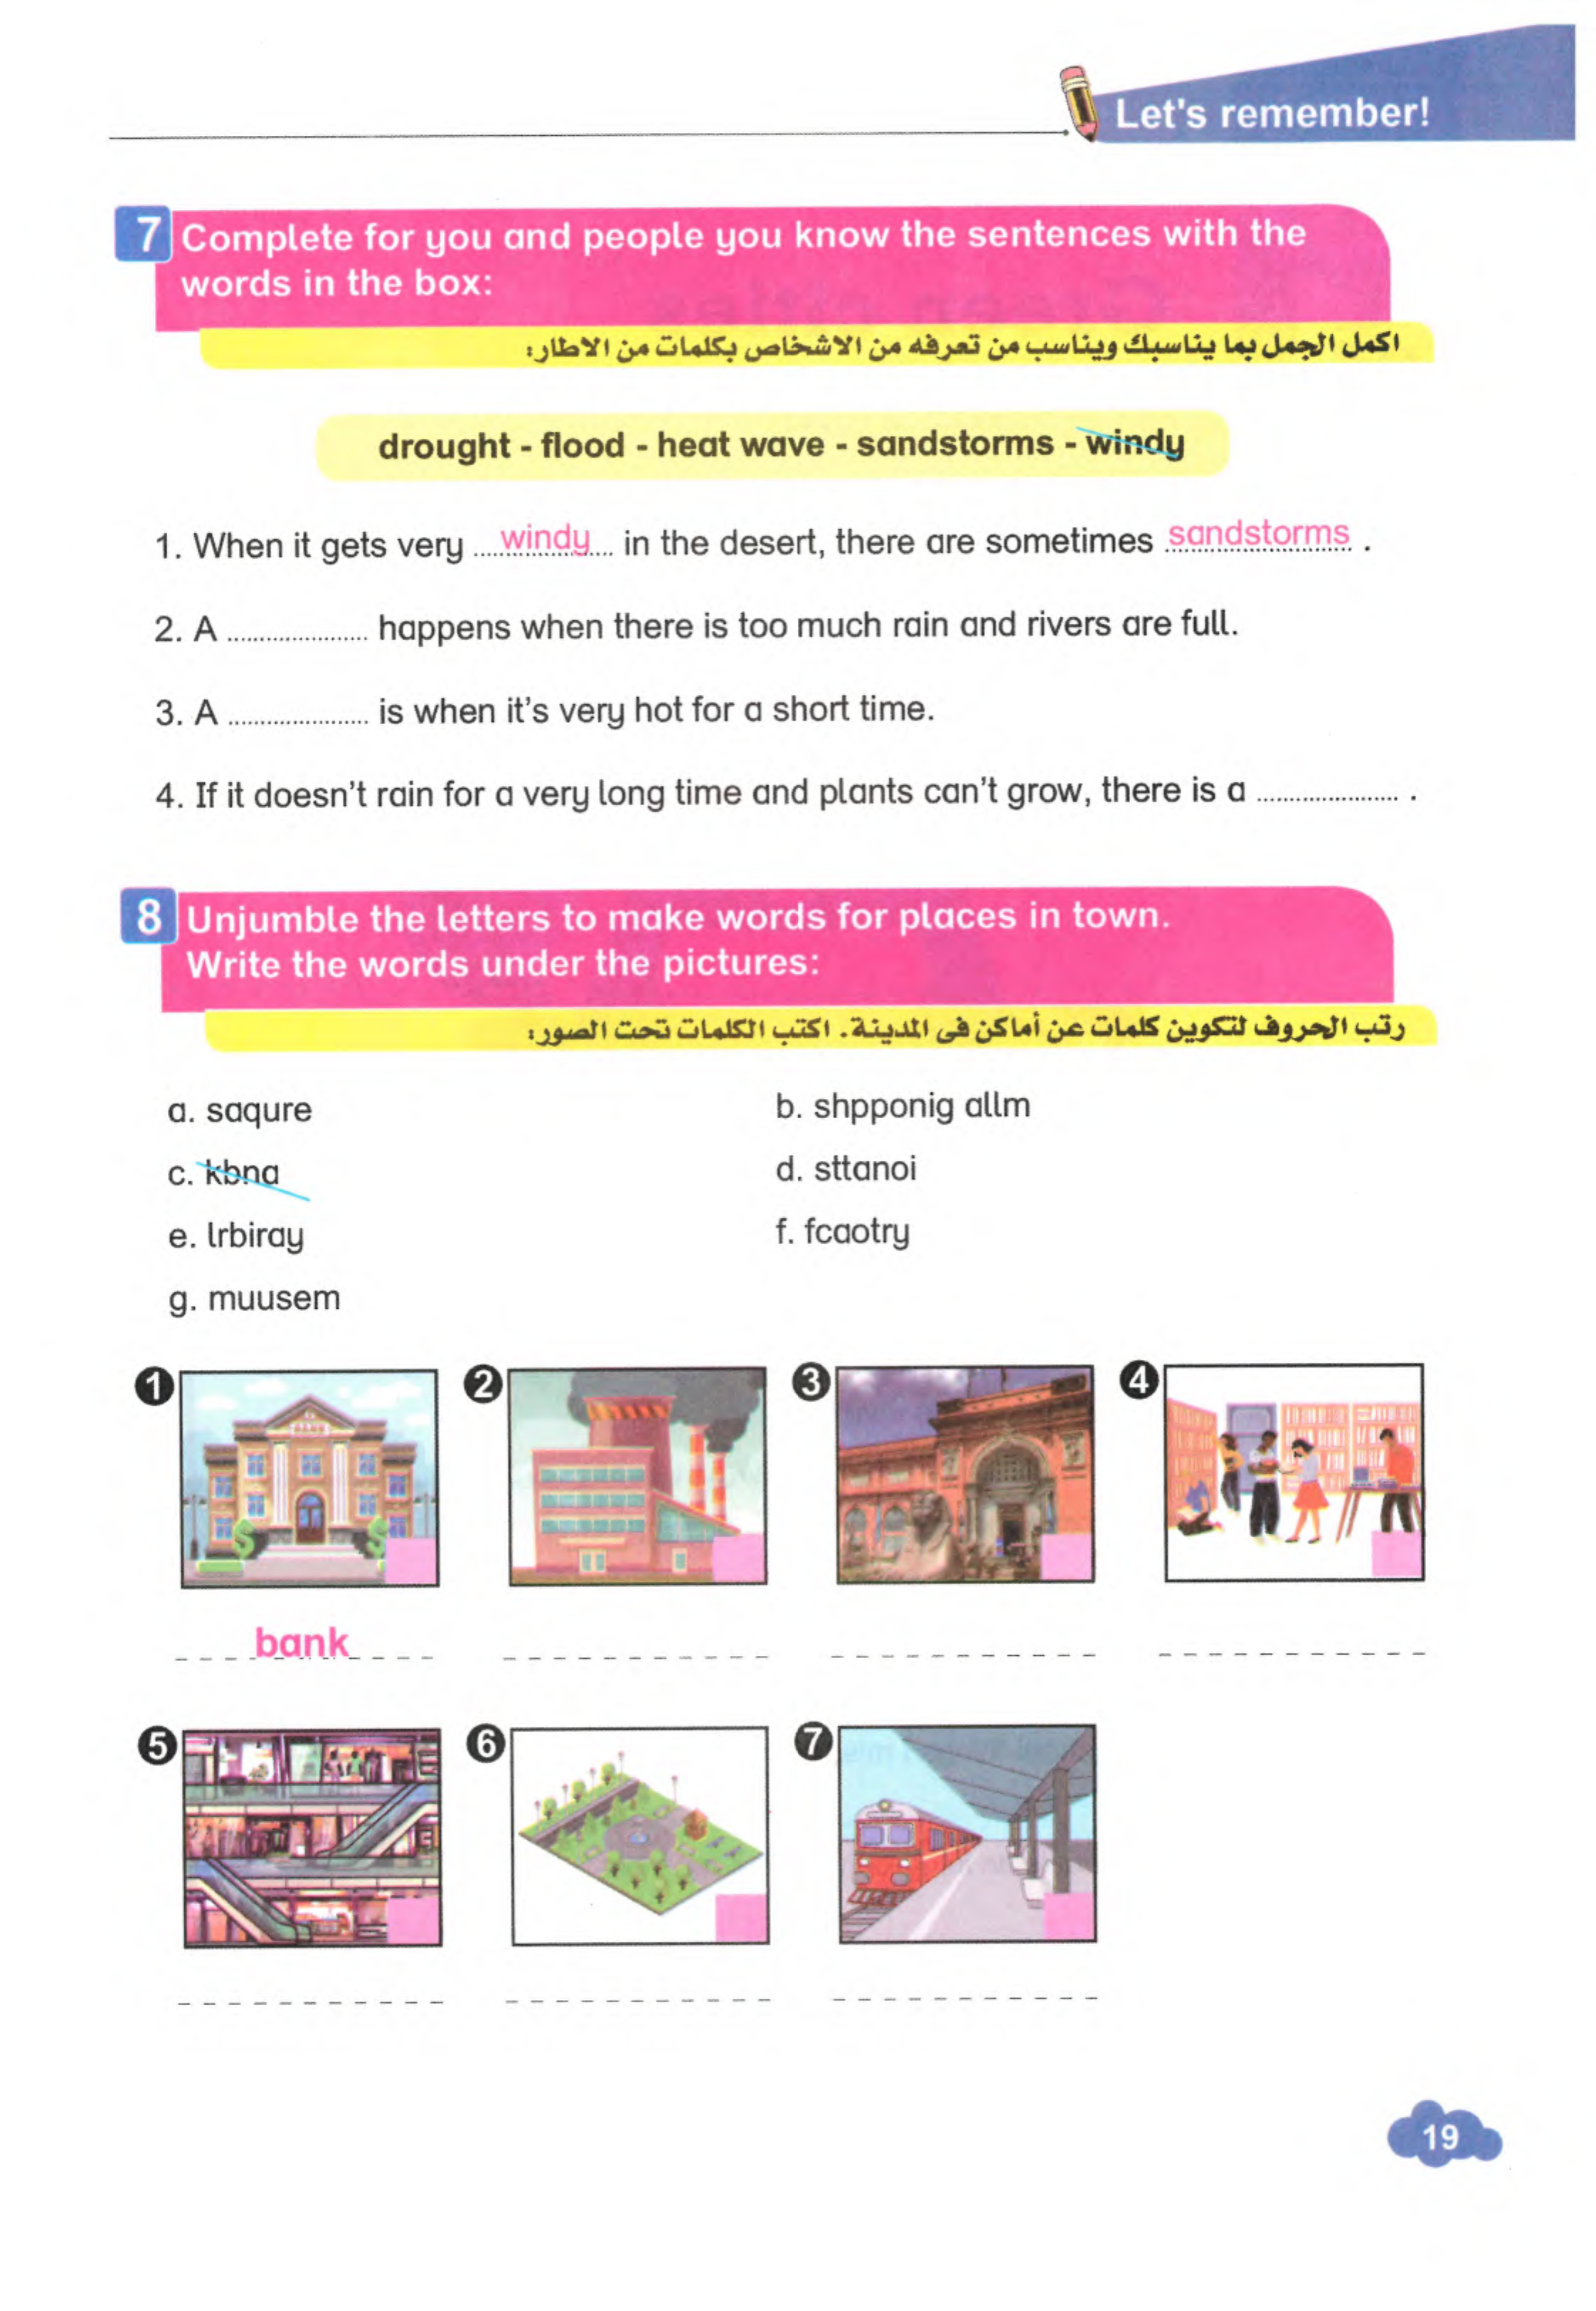 Let's remember!
7 Complete for you and people you know the sentences with the
words in the box:
اكمل الجمل بما يناسبك ويناسب من تعرفه من الاشخاص بكلمات من الاطار:
drought - flood - heat wave - sandstorms - windy
1. When it gets very ....windy.... in the desert, there are sometimes sandstorms .
2. A ..................... happens when there is too much rain and rivers are full.
3. A ..................... is when it's very hot for a short time.
4. If it doesn't rain for a very long time and plants can't grow, there is a ..................... .
8 Unjumble the letters to make words for places in town.
Write the words under the pictures:
رتب الحروف لتكوين كلمات عن أماكن فى المدينة. اكتب الكلمات تحت الصور:
a. saqure
b. shpponig allm
c. kbna
d. sttanoi
e. lrbiray
f. fcaotry
g. muusem
1
2
3
4
BANK
bank
5
6
7
19